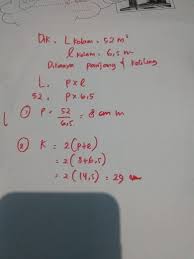 Dik. L kolam = 52 m²
l kolam = 6,5 m
Ditanya panjang & keliling
L. p x l
52. p x 6,5
① P = 52/6,5 = 8 m
② K = 2(p+l)
= 2(8+6,5)
= 2(14,5) = 29